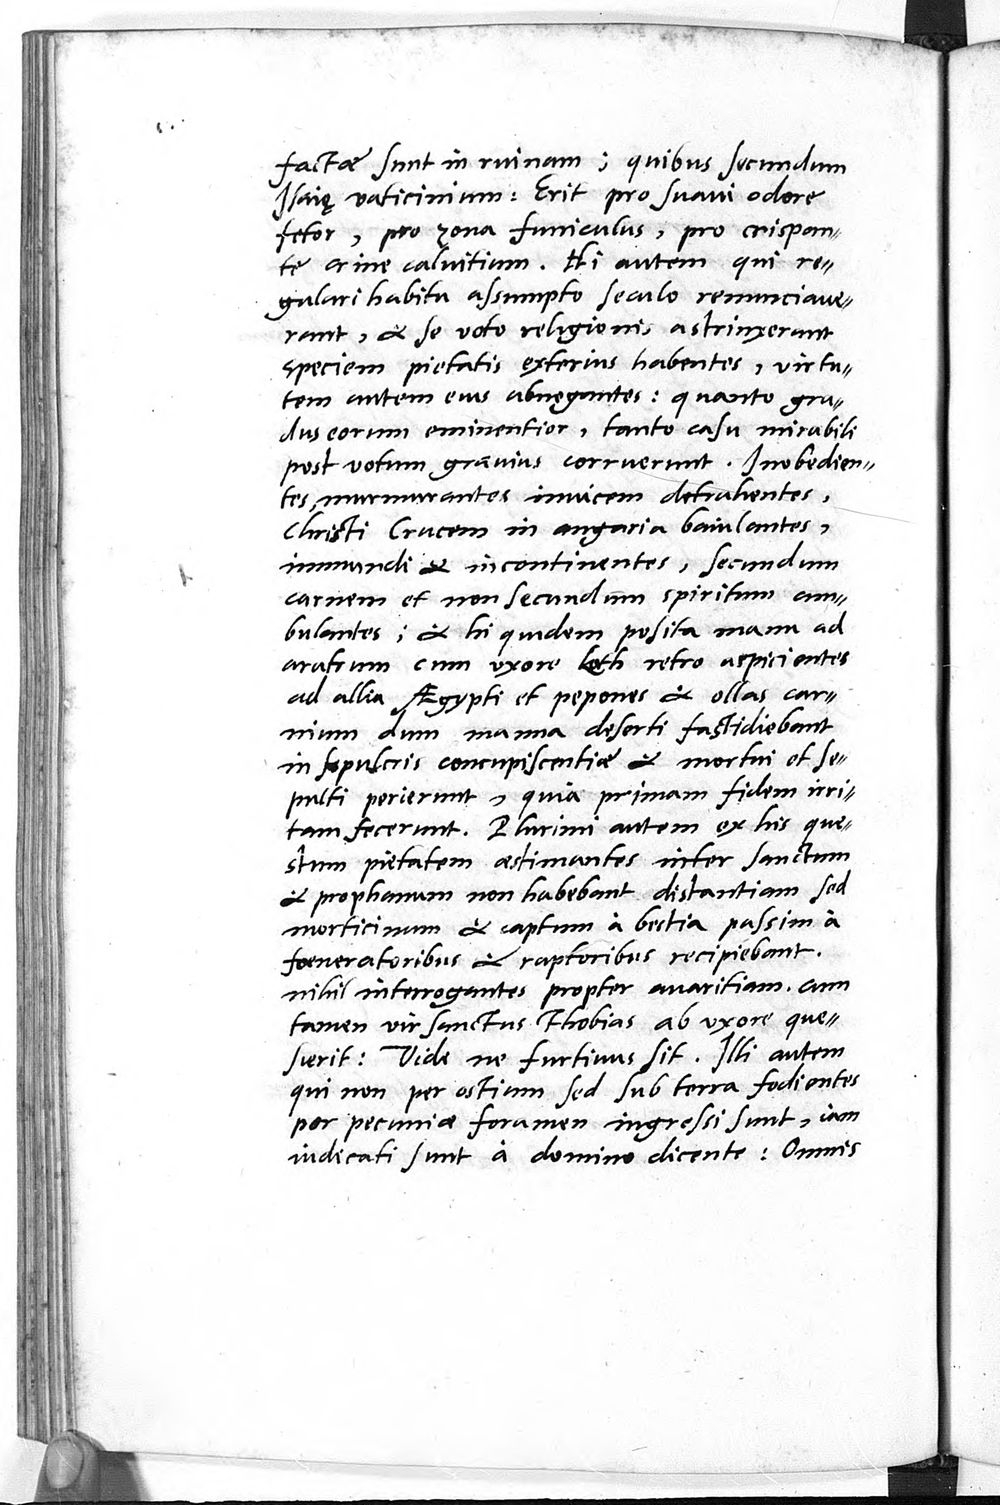 factæ sunt in ruinam ; quibus secundum
Isaię vaticinium : Erit pro suaui odore
fetor , pro zona funiculus , pro crispan=
te crine caluitium . Hi autem qui re=
gulari habitu assumpto seculo renunciaue=
rant , & se voto religionis astrinxerant
speciem pietatis exterius habentes , virtu=
tem autem eius abnegantes : quanto gra=
dus eorum eminentior , tanto casu mirabili
post votum grauius corruerunt . Inobedien=
tes, murmurantes inuicem detrahentes ,
Christi Crucem in angaria baiulantes ,
immundi & incontinentes , secundum
carnem et non secundum spiritum am=
bulantes ; & hi quidem posita manu ad
aratrum cum vxore Loth retro aspicientes
ad allia Ægypti et pepones & ollas car=
nium dum manna deserti fastidiebant
in sepulcris concupiscentiæ & mortui et se=
pulti perierunt , quia primam fidem irri=
tam fecerunt. Plurimi autem ex his que=
stum pietatem æstimantes inter sanctum
& prophanum non habebant distantiam sed
morticinum & captum à bestia passim à
foeneratoribus & raptoribus recipiebant .
nihil interrogantes propter auaritiam . cum
tamen vir sanctus Thobias ab vxore que=
sierit : Vide ne furtiuus sit . Illi autem
qui non per ostium sed sub terra fodientes
per pecuniæ foramen ingressi sunt , iam
iudicati sunt à domino dicente : Omnis